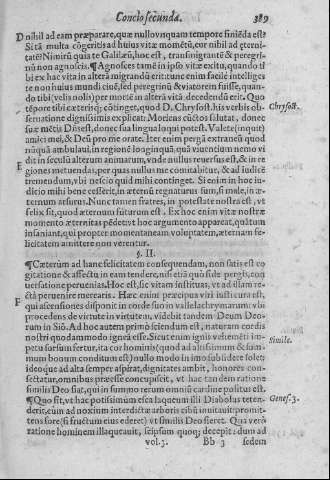 Concio secunda. 389
D nihil ad eam præparare, quæ nullo vnquam tempore finiẽda est?
Si tã multa cõgeritis ad huius vitæ momẽtũ, cur nihil ad æternitatẽ?
Nimirũ quia te Galilæũ, hoc est, transmigrantẽ & peregrinũ
non agnoscis. ¶ Agnosces tamẽ in ipso vitæ exitu, quando tibi
ex hac vita in alterã migrandũ erit: tunc enim facilè intelliges
te non huius mundi ciuẽ, sed peregrinũ & viatorem fuisse, quando
tibi (velis nolis) per mortẽ in alterã vitã decedendũ erit. Quo
tẽpore tibi cæterisq; cõtinget, quod D. Chrysost. his verbis obseruatione
dignissimis explicat:
Chrysost.
Moriens cũctos salutat, donec
suæ mẽtis Dñs est, donec sua lingua loqui potest. Valete (inquit)
amici mei, & Deũ pro me orate. Iter enim pergã extraneũ quod
nũquã ambulaui, in regionẽ longinquã, quã viuentium nemo vidit
in seculũ alterum animarum, vnde nullus reuersus est, & in regiones
E
metuendas, per quas nullus me comitabitur, & ad Iudicẽ
tremendum, vbi nescio quid mihi continget. Si enim in hoc iudicio
mihi bene cesserit, in æternũ regnaturus sum, si male, in æternum
arsurus. Nunc tamen fratres, in potestate nostra est, vt
felix sit, quod æternum futurum est. Ex hoc enim vitæ nostræ
momento æternitas pẽdet: vt hoc argumento appareat, quãtum
insaniant, qui propter momentaneam voluptatem, æternam felicitatem
amittere non verentur.
§. II.
¶ Cæterùm ad hanc felicitatem consequendam, non satis est cogitatione
& affectu in eam tendere, nisi etiã quò side pergis, conuersatione
peruenias. Hoc est, sic vitam instituas, vt ad illam rectà
peruenire merearis.
F
Hæc enim præcipua viri iusti cura est,
qui ascensiones disponit in corde suo in valle lachrymarum: vbi
procedens de virtute in virtutem, videbit tandem Deum Deorum
in Siõ. Ad hoc autem primò sciendum est, naturam cordis
nostri quodammodo igneã esse.
Simile.
Sicut enim ignis vehemẽti impetu
sursum fertur, ita cor hominis (quod ad altissimum & summum
bonum conditum est) nullo modo in imo subsidere solet:
ideoque ad alta semper aspirat, dignitates ambit, honores consectatur,
omnibus præesse concupiscit, vt hac tandem ratione
similis Deo fiat, qui in summo rerum omniũ cardine positus est.
¶ Quo fit, vt hac potissimùm esca laqueum illi Diabolus tetenderit,
Genes. 3.
cùm ad noxium interdictæ arboris cibũ inuitauit: promittens
fore (si fructum eius ederet) vt similis Deo fieret. Qua verò
ratione hominem illaqueauit, seipsum quoq; decepit: dum ad
vol. 3. Bb 3 sedem